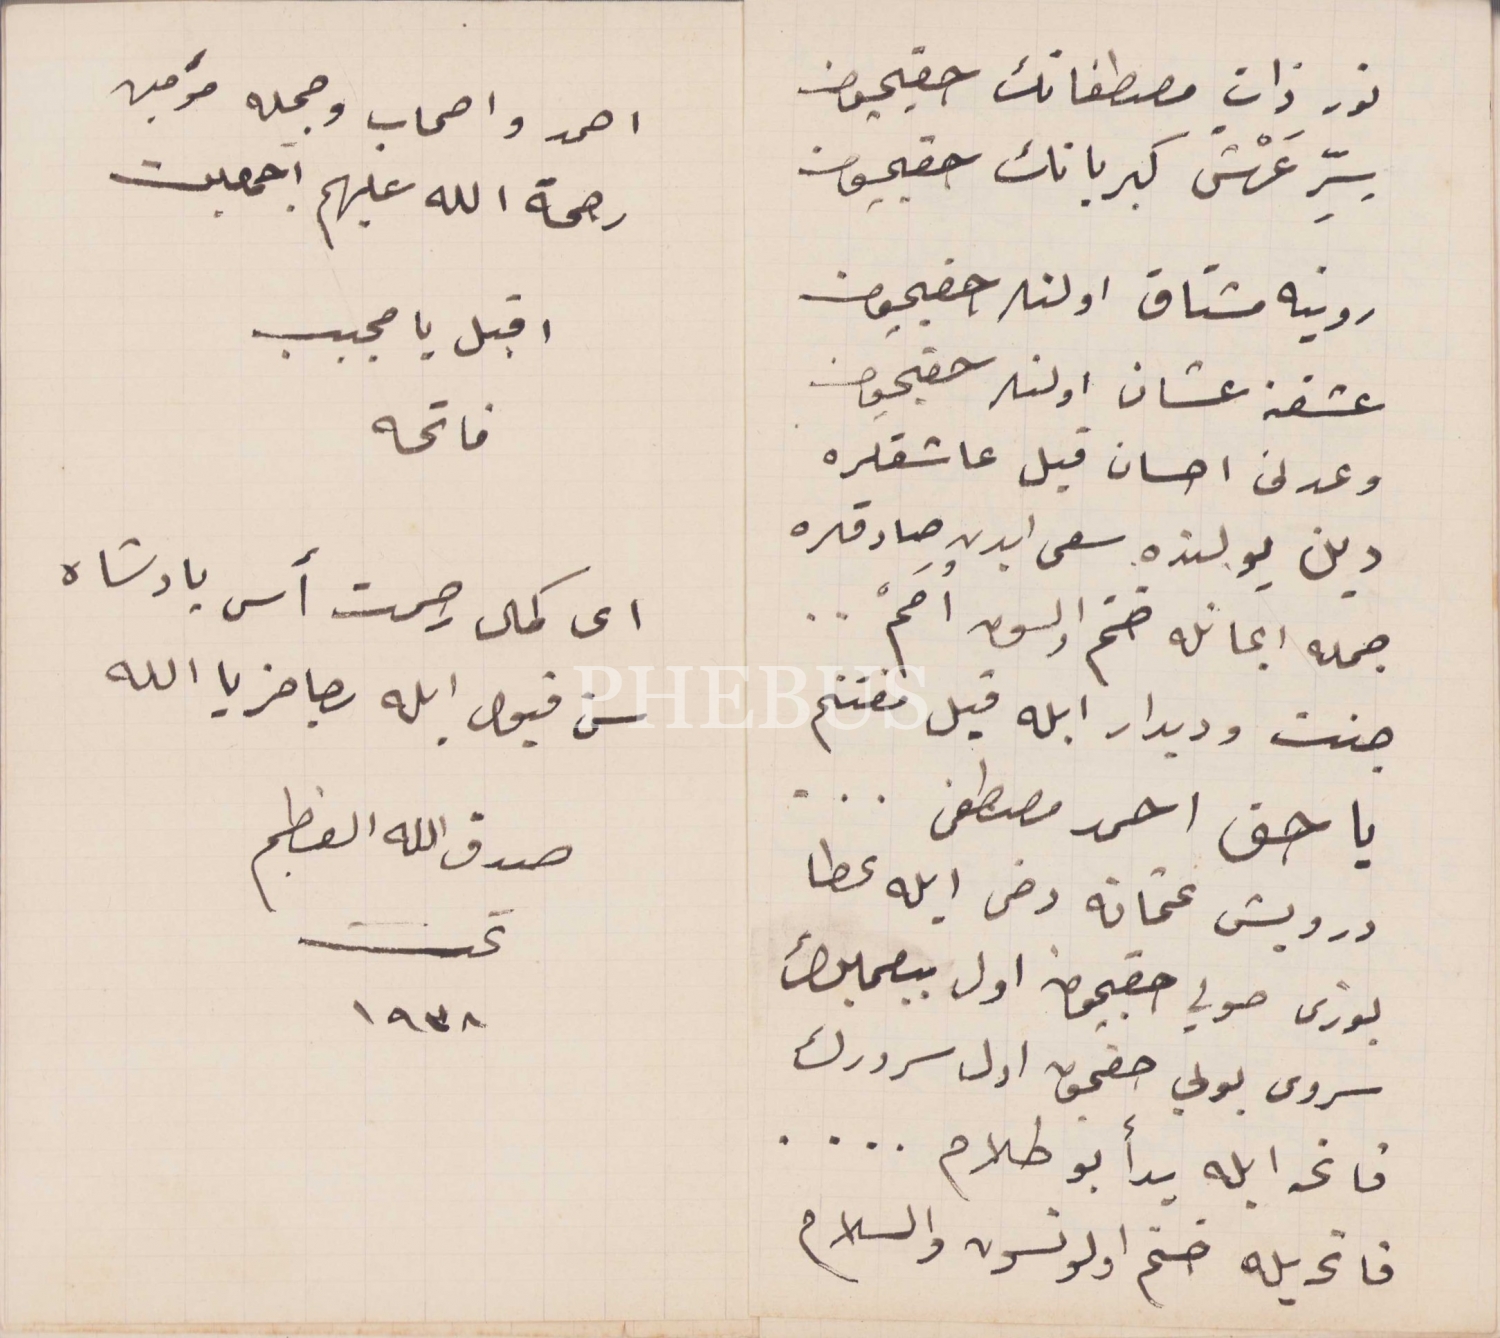 نور ذات مصطفانك حقيچون
سِرِّ عَرْش كبريانك حقيچون
روينه مشتاق اولنلر حقيچون
عشقنه عشاق اولنلر حقيچون
وعدنى احسان قيل عاشقلره
دين يولنده سعى ايدن صادقلره
جمله ايمانله ختم اولسون اُمَمْ ..
جنت و ديدار ايله قيل مغتنم
يا حق احمد مصطفى ...
درويش عثمانه دخى ايله عطا
يوزى صويى حقيچون اول پيغمبرك
سروى بويى حقيچون اول سرورك
فاتحه ايله يدأ بو كلام ....
فاتحه يله ختم اولونسون والسلام
احمد و اصحاب و جمله مؤمنين
رحمة الله عليهم أجمعين
اقبل يا مجيب
فاتحه
اى كمال رحمت أسى پادشاه
سن قبول ايله رجامز يا الله
صدق الله العظيم
تمت
١٩٣٨
PHEBUS